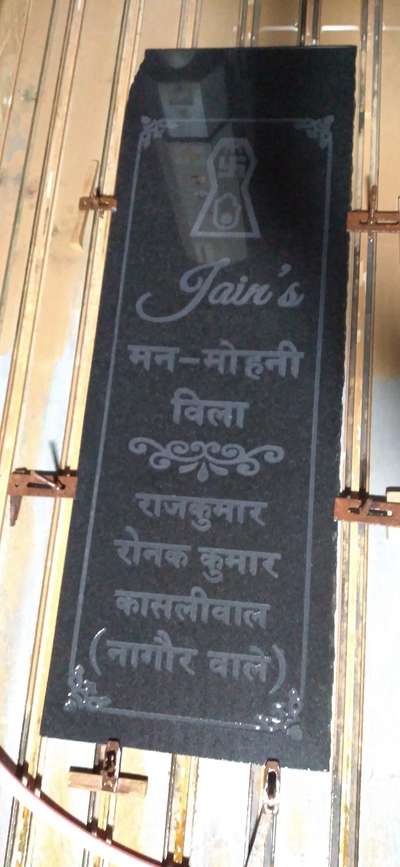 Jain's
मन-मोहनी
विला
राजकुमार
रोनक कुमार
कासलीवाल
(नागौर वाले)